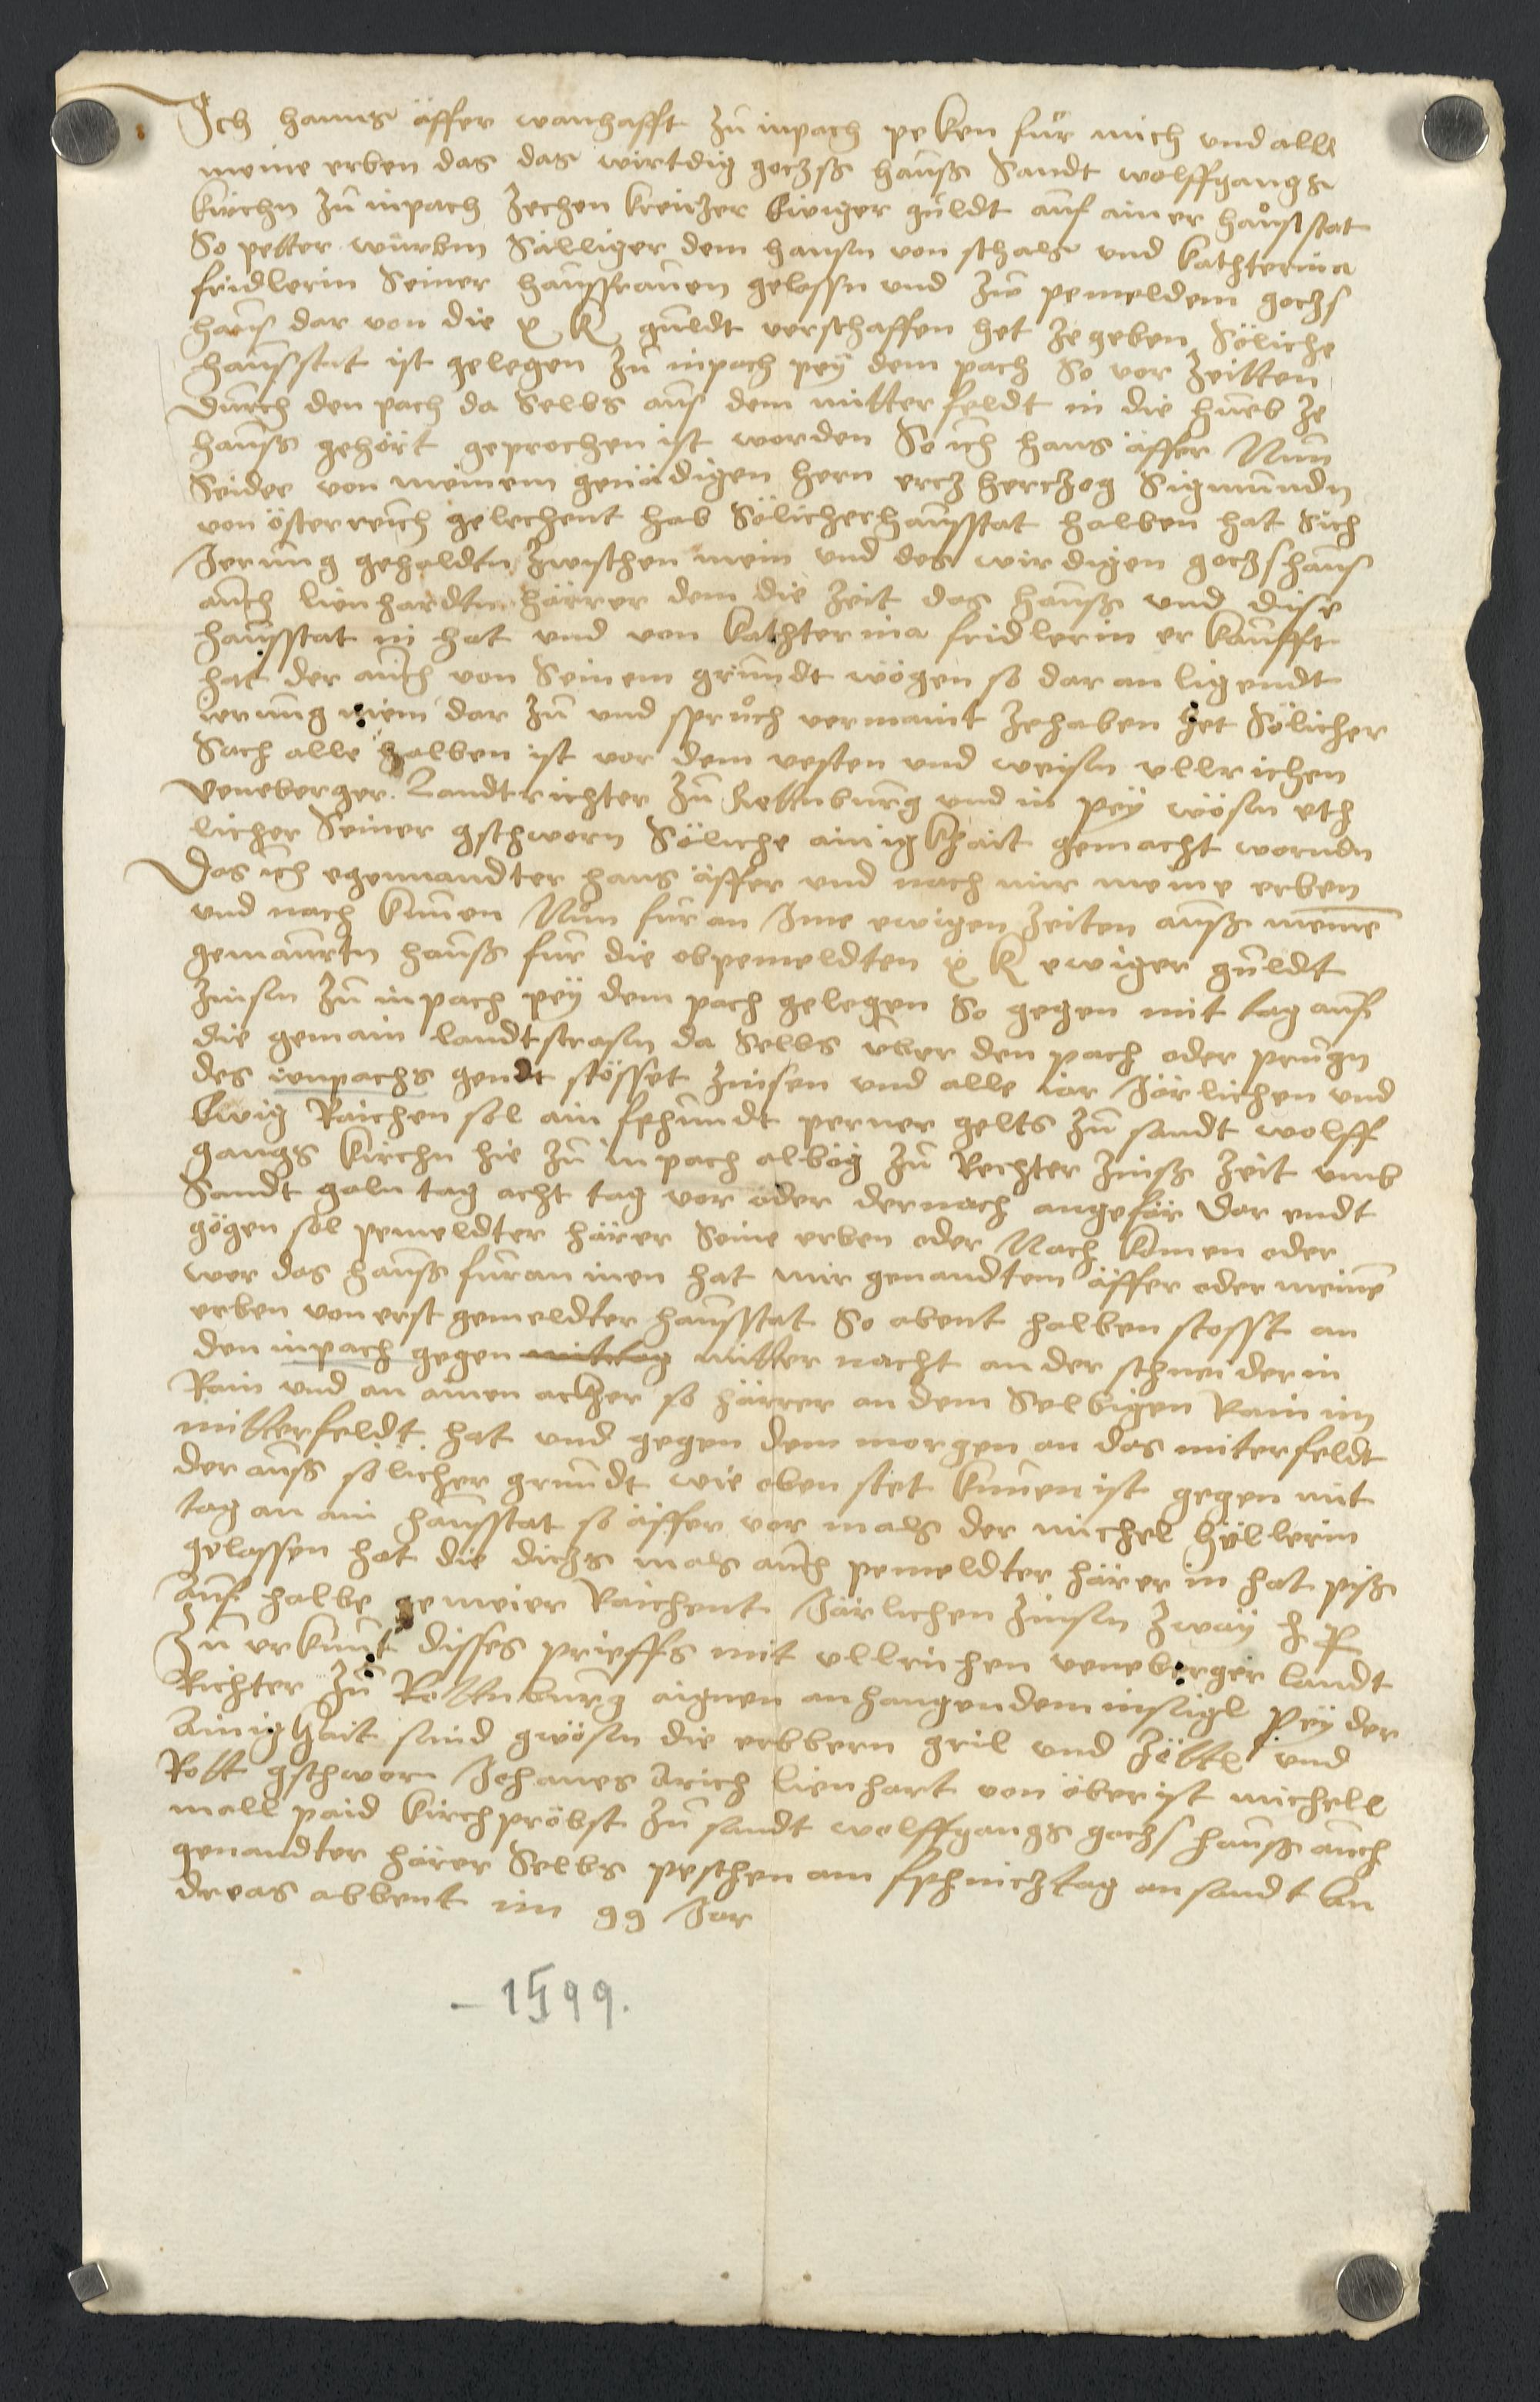 Ich hanns äffer wonhafft zu inpach peken für mich und alle
meine erben das das wirtdig goczß hauß Sandt wolffgangs
kirchn zu inpach zechen kreizer Ewiger guldt auf ainer hausstat
So petter würbm Sälliger dem hansn von schals und kathterina
fridlerin Seiner haussfrauen gelassn und zw pemeldem goczs
haus dar von die x K guldt verschaffen het ze geben Söliche
hausstat ist gelegen zu inpach pey dem pach So vor zeitten
Durch den pach da Selbs aus dem mitterfeldt in die hueb ze
hauß gehört geprochen ist worden So ich hans äffer Nun
Seider von meinem genädigen hern ercz herczog Sigmundn
von österreich gelechent hab Sölicher hausstat halben hat Sich
Jerung gehaldtn zwischen mein und des wirdigen goczshaus
auch lienhardtn härrer dem die zeit das hauß und dise
hausstat in hat und von kathterina fridlerin er kaufft
hat der auch von Seinem grundt wögen so dar an ligendt
irrung dar zu und spruch vermaint ze haben het Sölicher
Sach alle halben ist vor dem vesten und weisn ullrichen
veneberger Landtrichter zu Rettnburg und in pey wösn etz
licher Seiner gschworn Söliche ainigkhait gemacht wordn
Das ich egenandter hans äffer und nach mir meine erben
und nach kumen Nun für an Ime ewigen zeiten auß meinē
gemaurtn hauß für die obpemeldten x K ewiger guldt
zinsn zu inpach pey dem pach gelegen So gegen mit tag auf
die gemain landtstrasn da Selbs über den pach oder prugn
des innpachs gendt stösset zinsen und alle iar Järlichen und
Ewig Raichen sol ain pfhundt perner gelts zu sandt wolff
gangs kirchn hie zu inpach albög zu Rechter zinß zeit umb
Sandt galn tag acht tag vor oder dernach angefär Dar endt
gögen sol pemeldter härer Seine erben oder Nach komen oder
wer das hauß füran innen hat mir genandtem äffer oder meinē
erben von erst gemeldter hausstat So abent halben stosst an
den inpach gegen mittag mitter nacht an der schneiderin
Rain und an ainen acker so härrer an dem Selbigen Rain im
mitterfeldt hat und gegen dem morgen an das miterfeldt
der auß sölicher grundt wie oben stet kumen ist gegen mit
tag an ain hausstat so äffer vor mals der michel hüllerin
gelassen hat die dichs mals auch pemeldter härer in hat piß
auf halbe gemeier Raichent Järlichen zinsn zway
Zu urkunt disses prieffs mit ullrichen veneberger landt
Richter zu Rottnburg aignen anhangendem insigl pey der
Ainigkhait sind gwösn die erbbern gril und zöttl und
Rott gschwor Johanes Arich lienhart von öberist michell
mall paid kirchpröbst zu sandt wolffgangs goczs hauß auch
genandter härer Selbs peschen am pfhincztag an sandt An
dreas abbent im 99 Jar
- 1599.